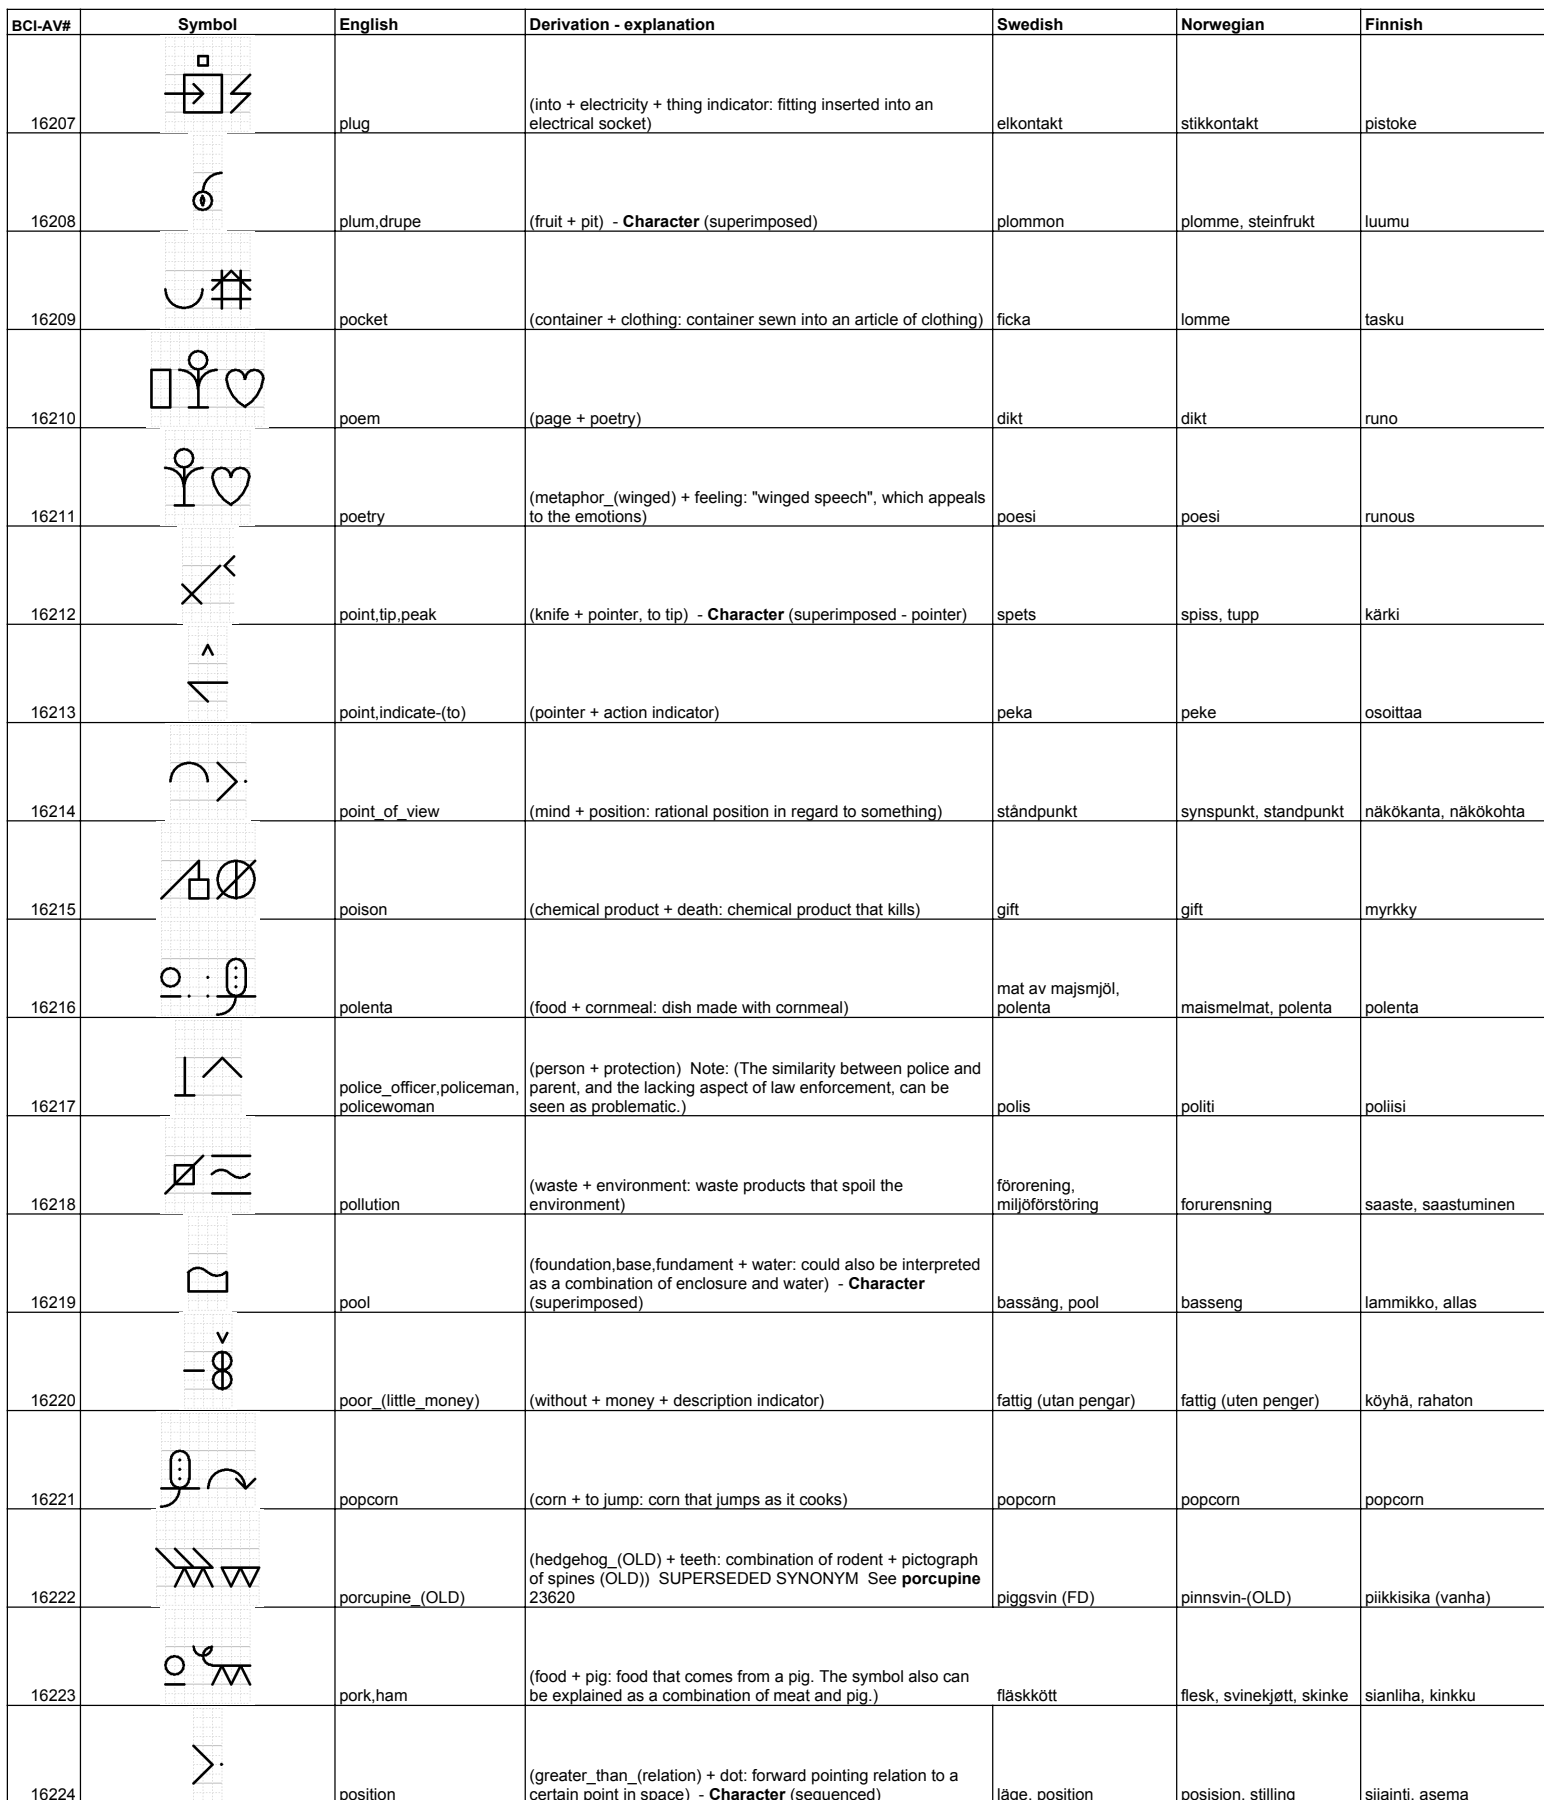 BCI-AV# Symbol English Derivation - explanation Swedish Norwegian Finnish
(into + electricity + thing indicator: fitting inserted into an
16207 plug electrical socket) elkontakt stikkontakt pistoke
16208 plum,drupe (fruit + pit)  - Character (superimposed) plommon plomme, steinfrukt luumu
16209 pocket (container + clothing: container sewn into an article of clothing) ficka lomme tasku
16210 poem (page + poetry) dikt dikt runo
(metaphor_(winged) + feeling: "winged speech", which appeals
16211 poetry to the emotions) poesi poesi runous
16212 point,tip,peak (knife + pointer, to tip)  - Character (superimposed - pointer) spets spiss, tupp kärki
16213 point,indicate-(to) (pointer + action indicator) peka peke osoittaa
16214 point_of_view (mind + position: rational position in regard to something) ståndpunkt synspunkt, standpunkt näkökanta, näkökohta
16215 poison (chemical product + death: chemical product that kills) gift gift myrkky
mat av majsmjöl,
16216 polenta (food + cornmeal: dish made with cornmeal) polenta maismelmat, polenta polenta
(person + protection)  Note: (The similarity between police and
police_officer,policeman, parent, and the lacking aspect of law enforcement, can be
16217 policewoman seen as problematic.) polis politi poliisi
(waste + environment: waste products that spoil the förorening,
16218 pollution environment) miljöförstöring forurensning saaste, saastuminen
(foundation,base,fundament + water: could also be interpreted
as a combination of enclosure and water)  - Character
16219 pool (superimposed) bassäng, pool basseng lammikko, allas
16220 poor_(little_money) (without + money + description indicator) fattig (utan pengar) fattig (uten penger) köyhä, rahaton
16221 popcorn (corn + to jump: corn that jumps as it cooks) popcorn popcorn popcorn
(hedgehog_(OLD) + teeth: combination of rodent + pictograph
of spines (OLD))  SUPERSEDED SYNONYM  See porcupine
16222 porcupine_(OLD) 23620 piggsvin (FD) pinnsvin-(OLD) piikkisika (vanha)
(food + pig: food that comes from a pig. The symbol also can
16223 pork,ham be explained as a combination of meat and pig.) fläskkött flesk, svinekjøtt, skinke sianliha, kinkku
(greater_than_(relation) + dot: forward pointing relation to a
16224 position certain point in space)  - Character (sequenced) läge, position posisjon, stilling sijainti, asema